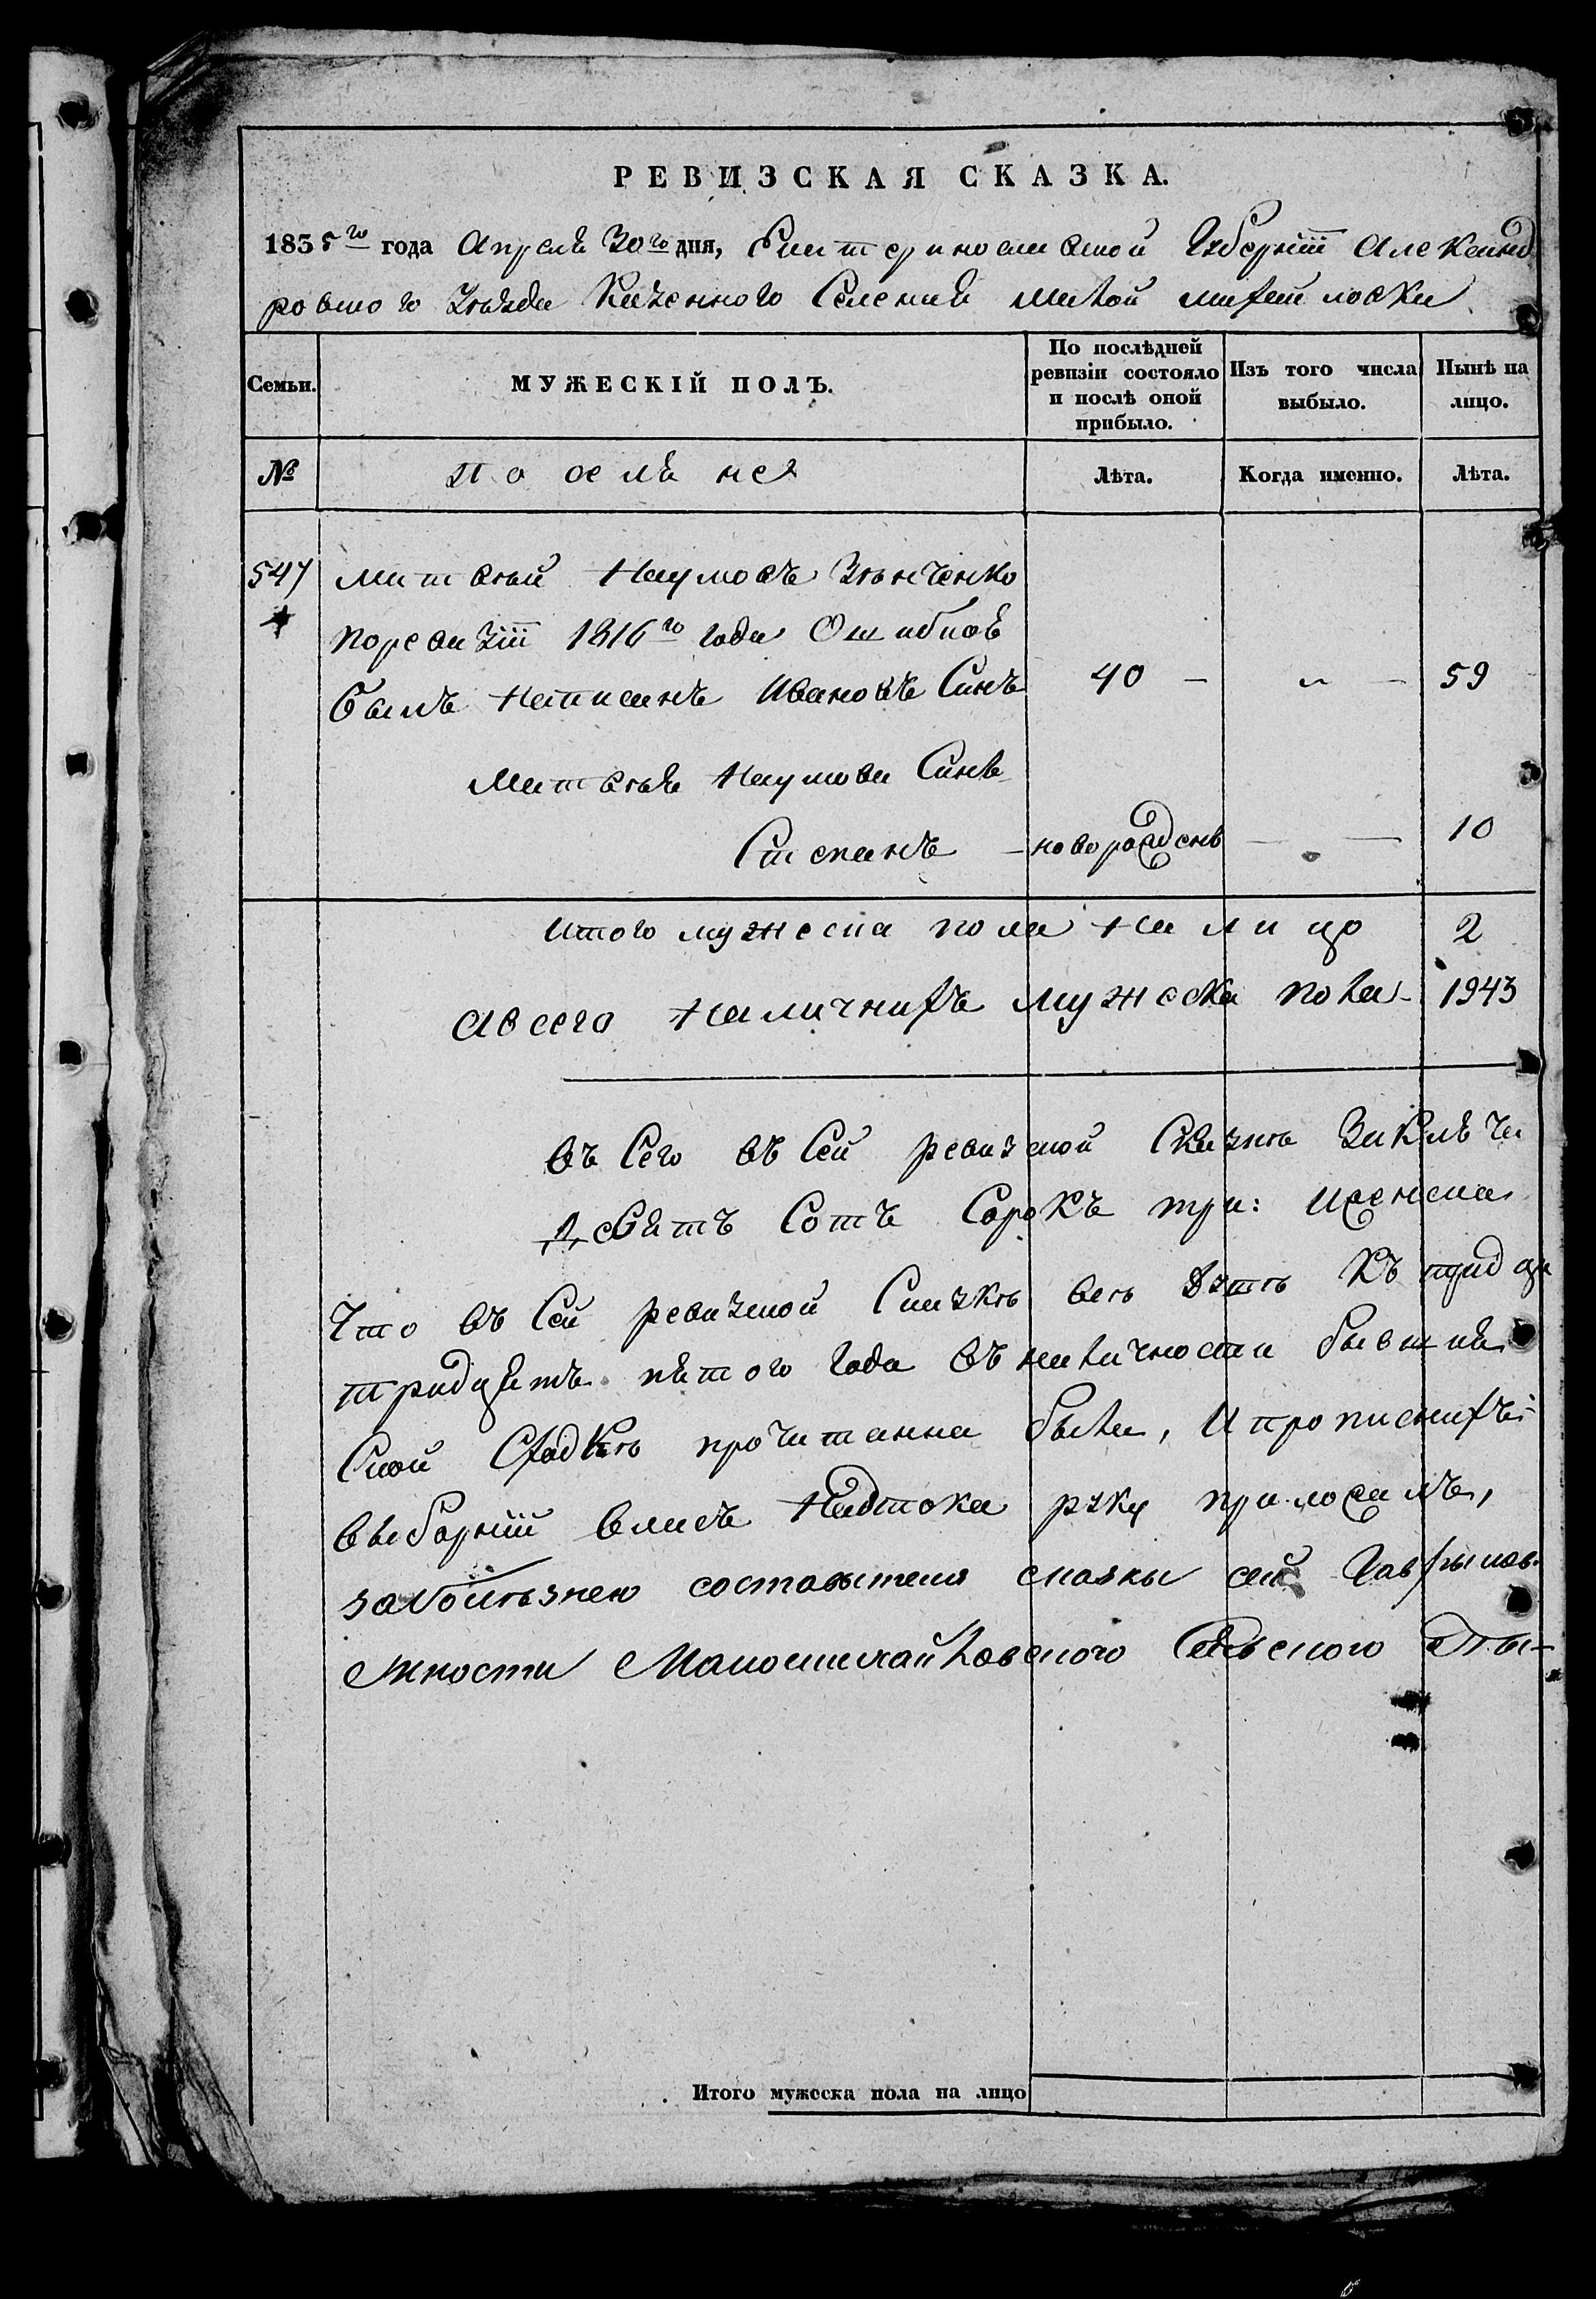 РЕВИЗСКАЯ СКАЗКА.
1835го года Апреля 30го дня, Екатеринославской Губернiи Александ
ровского Уѣзда Казенного Селенiя малой михайловки
Семьи.
МУЖЕСКІЙ ПОЛЪ.
По послѣдней ревизіи состояло и послѣ оной прибыло.
Изъ того числа выбыло.
Нынѣ на лицо.
№
поселяне
Лѣта.
Когда именно.
Лѣта.
547 матвѣй Наумовъ Зѣнченко
поревизiи 1816го года Ошибкоѣ
былъ написанъ Ивановъ Синъ 40 — „ — 59
Матвѣя Наумова Синъ
Степанъ — новорожденъ — — 10
Итого мужеска пола на лицо 2
Авсего наличнихъ мужеска пола 1943
въ Сего въ Сей ревизской Сказкѣ Заклѣча
Девятъ Сотъ Сорокъ три: Иженска
Что въ Сей ревизской Сказкѣ всѣ Dушѣ Къ
тридцятъ пятого года въ наличности бывшия
Ской Сходкѣ прочитанна была, Ипрописнихъ
выборнiй власъ Надтока руку приложилъ,
заболѣзнею составытеля сказкы сей
жности Маломихайловского Сельского
Итого мужеска пола на лицо